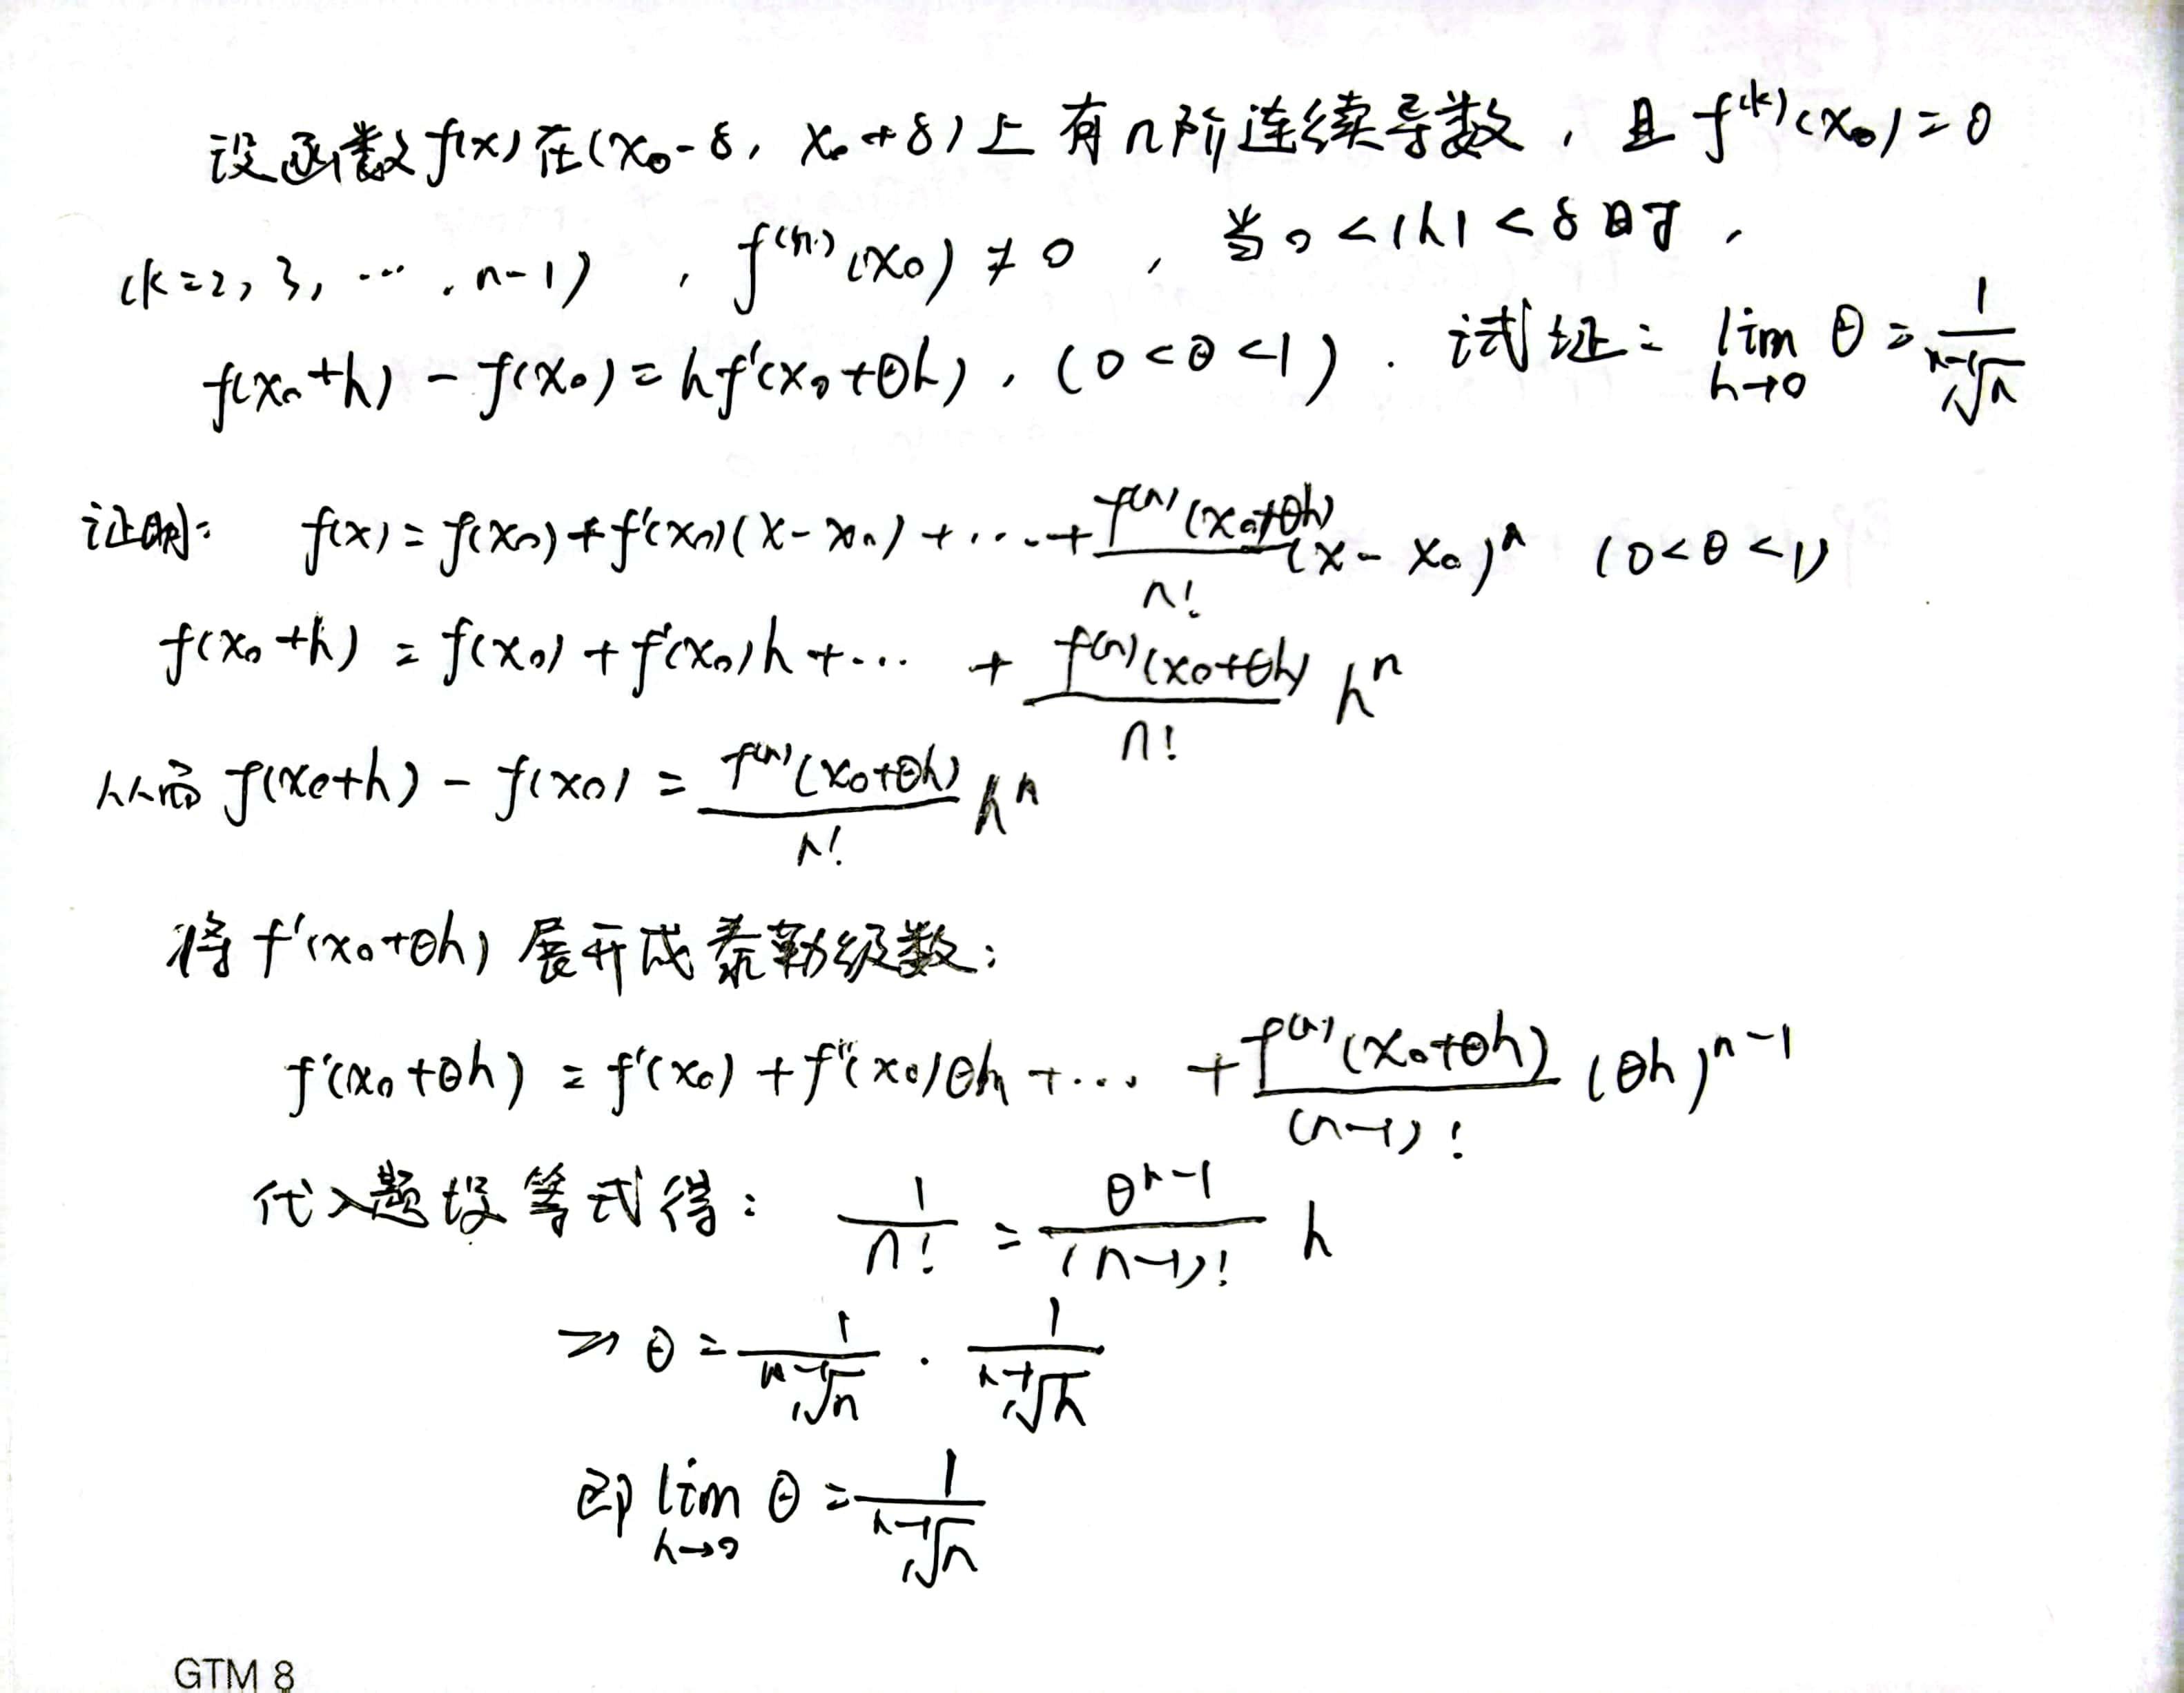 设函数f(x)在(x₀-δ, x₀+δ)上有n阶连续导数，且f⁽ᵏ⁾(x₀)=0
(k=2, 3, …, n-1)，f⁽ⁿ⁾(x₀)≠0，当0<|h|<δ时，
f(x₀+h)-f(x₀)=hf'(x₀+θh)，(0<θ<1). 试证：lim_{h→0} θ = 1/ⁿ⁻¹√n
证明: f(x)=f(x₀)+f'(x₀)(x-x₀)+…+f⁽ⁿ⁾(x₀+θh)/n! (x-x₀)ⁿ (0<θ<1)
f(x₀+h)=f(x₀)+f'(x₀)h+… + f⁽ⁿ⁾(x₀+θh)/n! hⁿ
从而f(x₀+h)-f(x₀)= f⁽ⁿ⁾(x₀+θh)/n! hⁿ
将f'(x₀+θh)展开成泰勒级数：
f'(x₀+θh)=f'(x₀)+f''(x₀)θh+… + f⁽ⁿ⁾(x₀+θh)/(n-1)! (θh)ⁿ⁻¹
代入题设等式得： 1/n! = θⁿ⁻¹/(n-1)! h
⇒ θ = 1/ⁿ⁻¹√n · 1/ⁿ⁻¹√h
即 lim_{h→0} θ = 1/ⁿ⁻¹√n
GTM 8